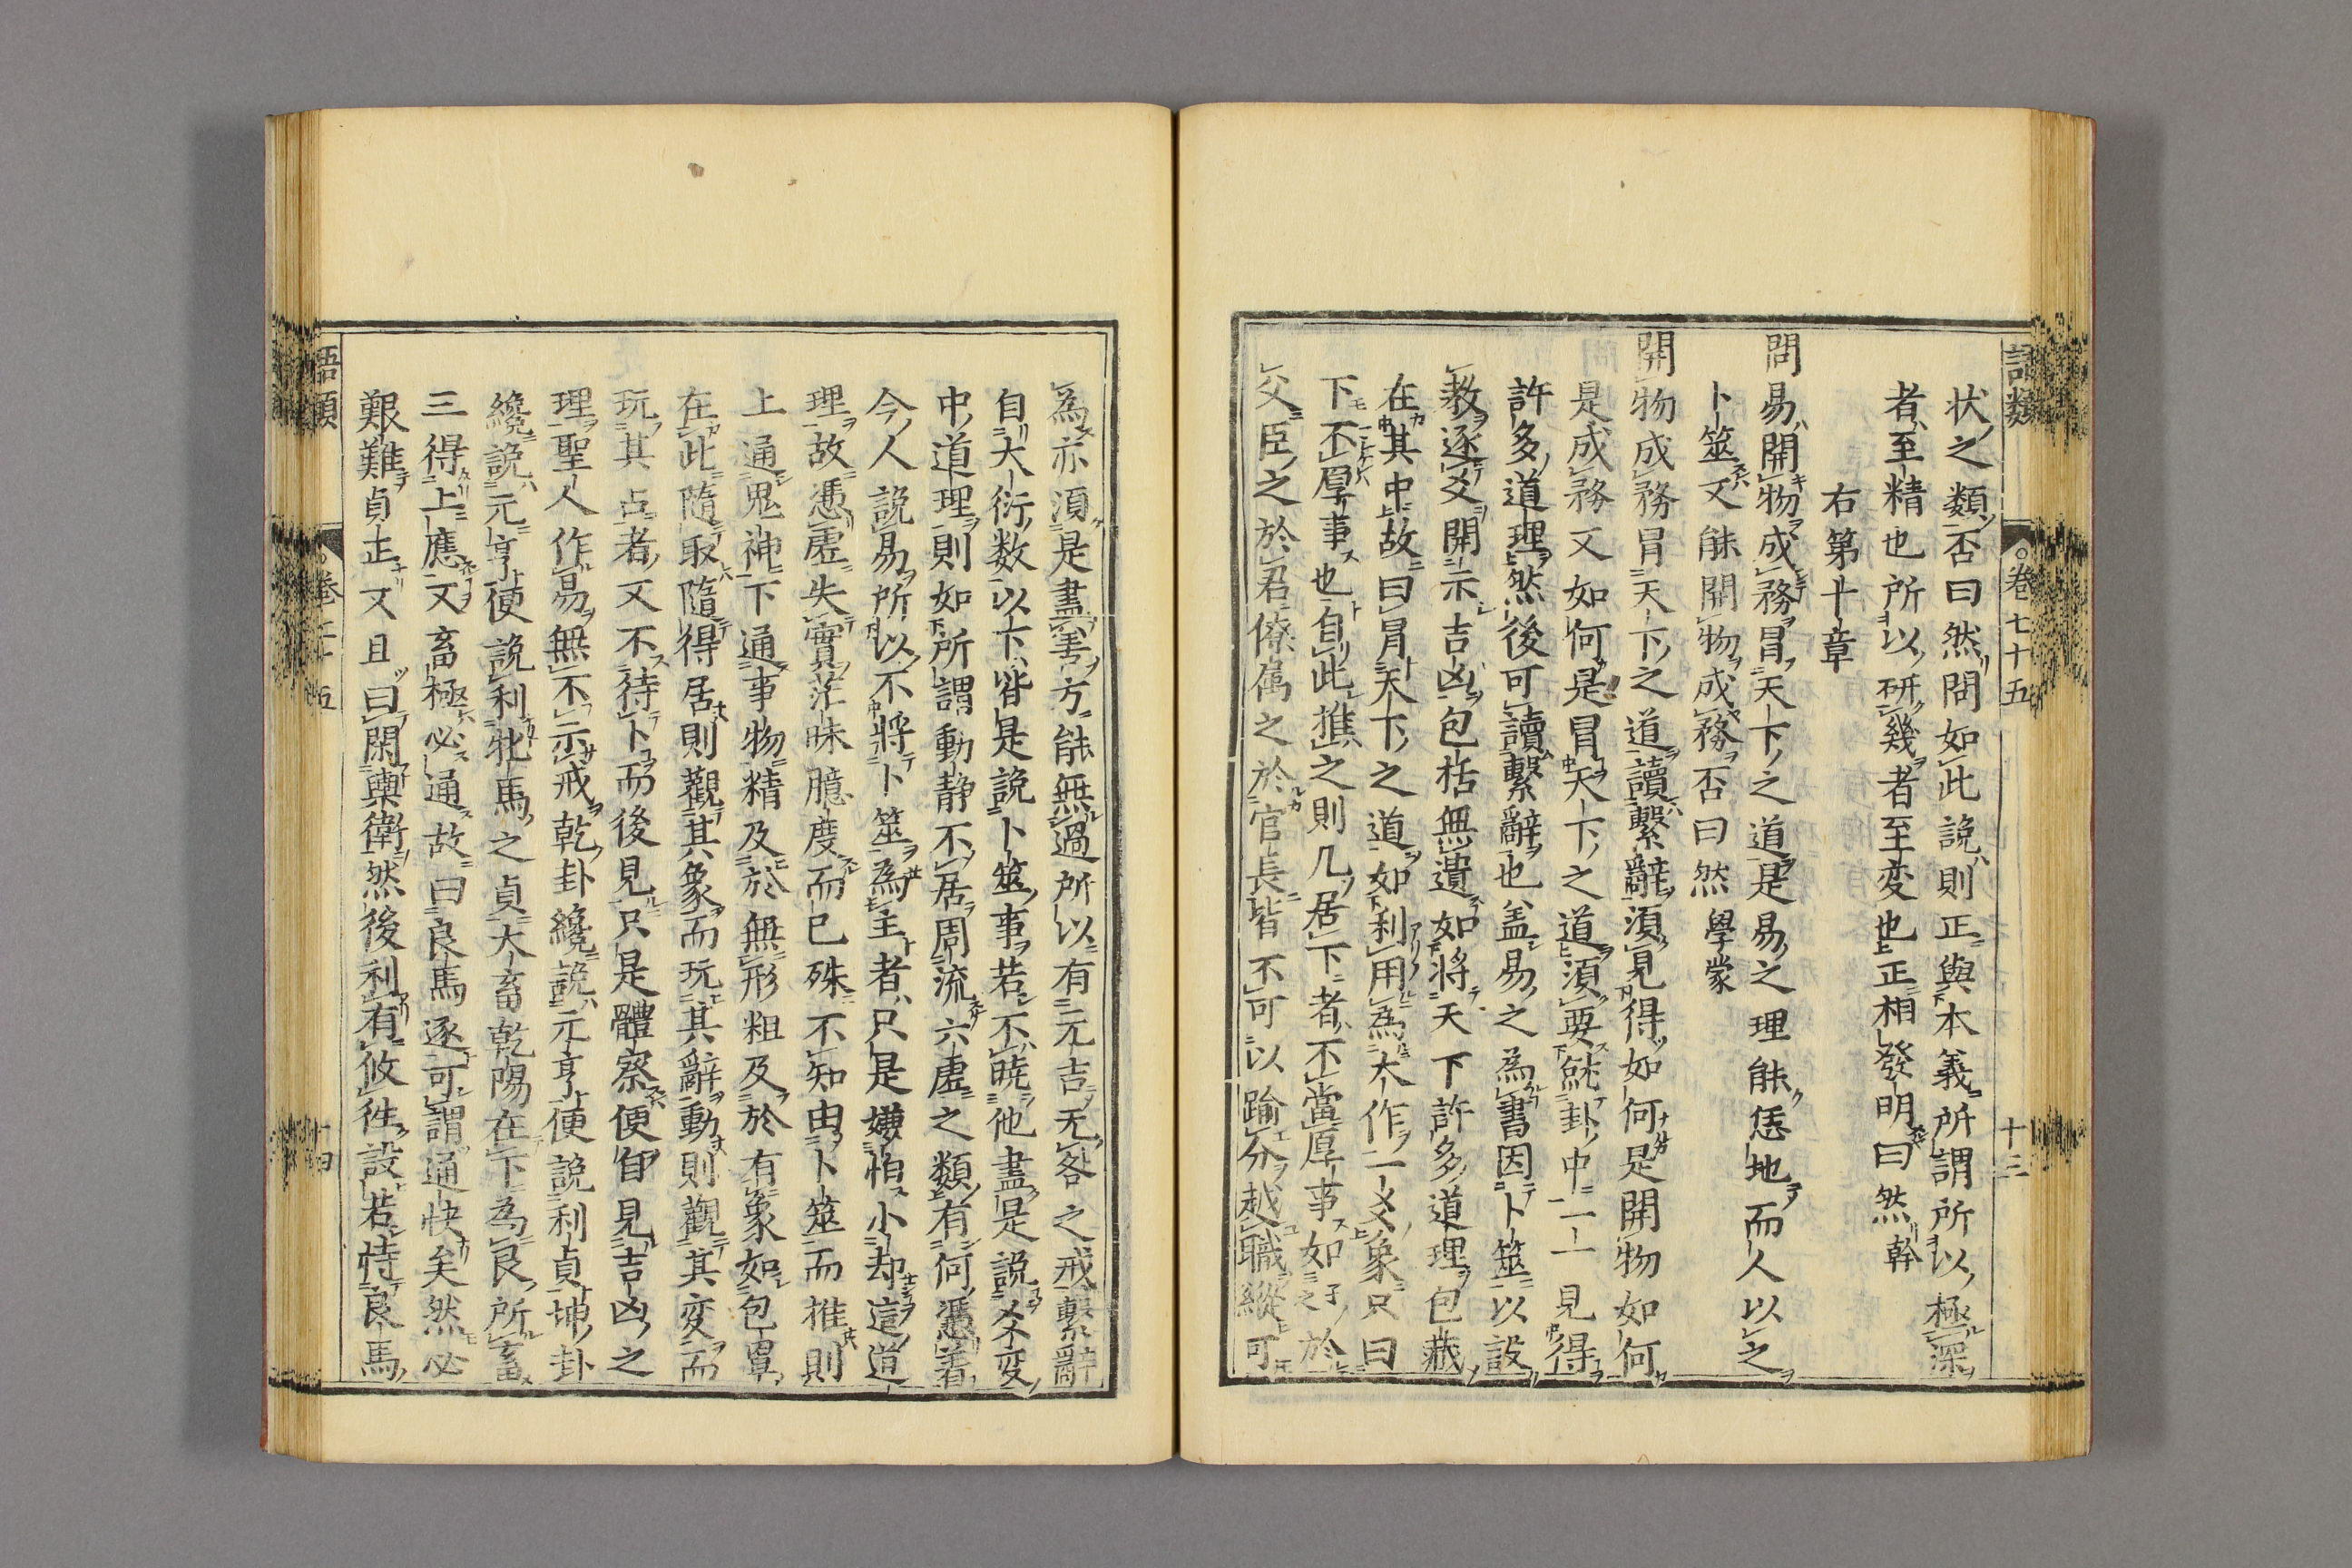 語類 卷七十五 十三
状之類否曰然問如此說則正與本義所謂所以極深
者至精也所以研幾者至変也正相發明曰然 幹
右第十章
問易開物成務冒天下之道是易之理能恁地而人以之
卜筮又能開物成務否曰然 學蒙
開物成務冒天下之道讀繫辭須見得如何是開物如何
是成務又如何是冒天下之道須要就卦中一一見得
許多道理然後可讀繫辭也盖易之為書因卜筮以設
教逐爻開示吉凶包括無遺如將天下許多道理包藏
在其中故曰冒天下之道如利用為大作一爻象只曰
下不厚事也自此推之則凡居下者不當厚事如子之於
父臣之於君僚属之於官長皆不可以踰分越職縱可
為亦須是盡善方能無過所以有元吉无咎之戒繫辭
自大衍数以下皆是說卜筮事若不暁他盡是說爻変
中道理則如所謂動静不居周流六虚之類有何憑着
今人說易所以不將卜筮為主者只是嫌怕小却這道
理故憑虚失實茫昧臆度而已殊不知由卜筮而推則
上通鬼神下通事物精及於無形粗及於有象如包罩
在此隨取隨得居則觀其象而玩其辭動則觀其変而
玩其占者又不待卜而後見只是體察便自見吉凶之
理聖人作易無不示戒乾卦纔說元亨便說利貞坤卦
纔說元亨便說利牝馬之貞大畜乾陽在下為艮所畜
三得上應又畜極必通故曰良馬逐可謂通快矣然必
艱難貞正又且曰閑輿衛然後利有攸往設若恃良馬
語類 卷七十五 十四